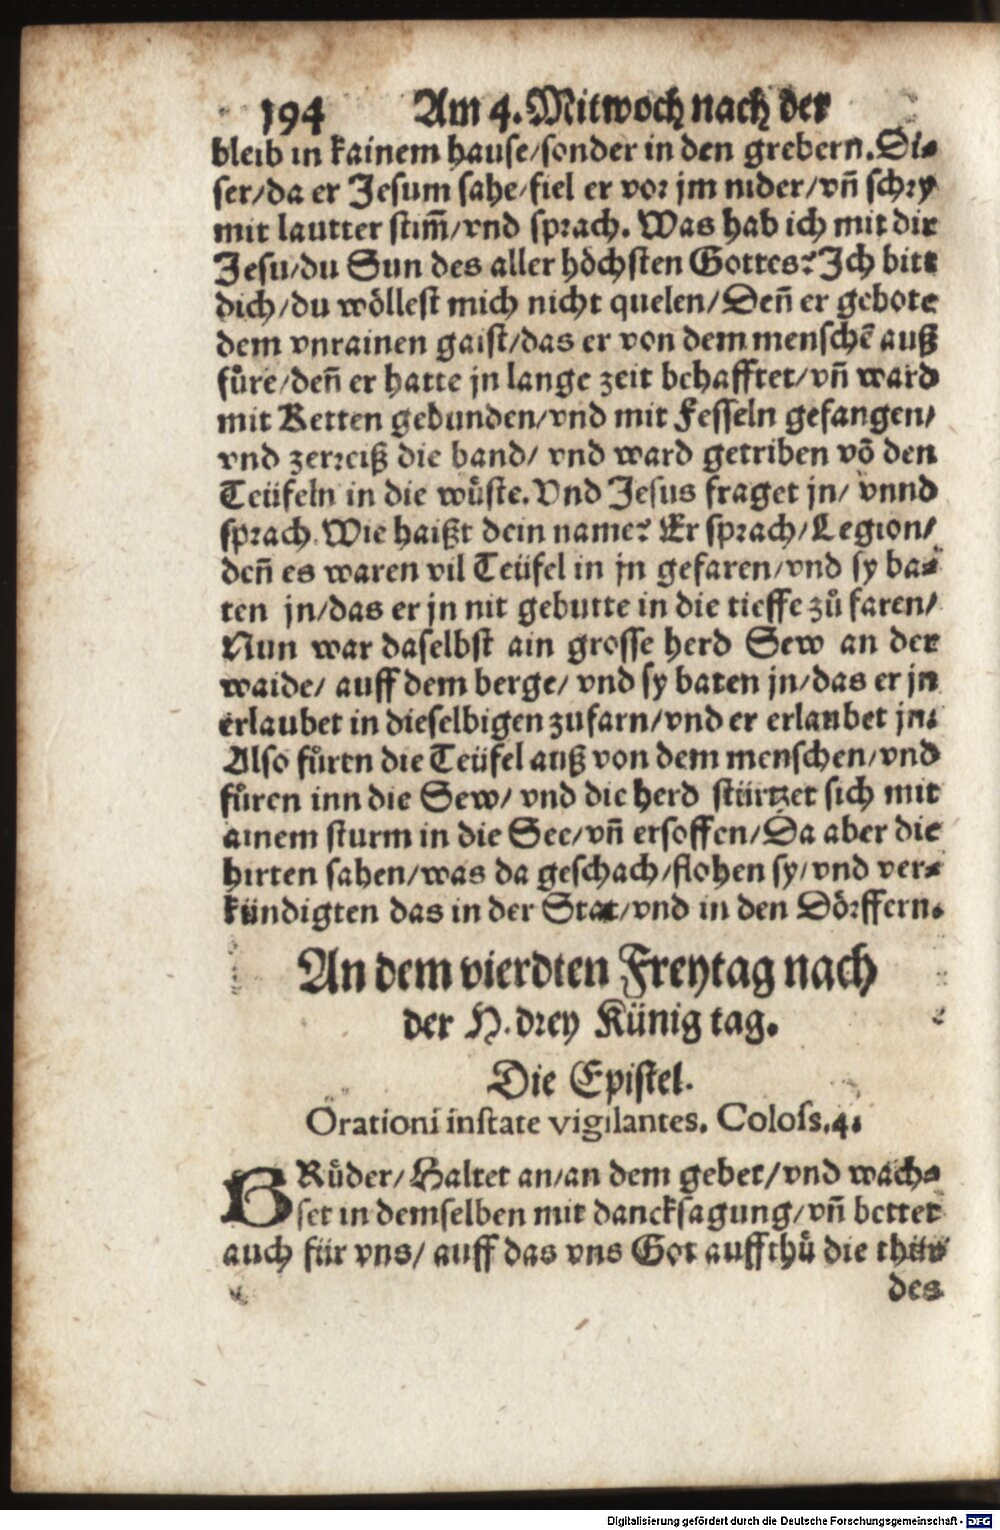 194 Am 4. Mitwoch nach der
bleib in kainem hause/sonder in den grebern. Di⸗
ser/da er Jesum sahe/fiel er vor jm nider/vn̄ schry
mit lautter stim̄/vnd sprach. Was hab ich mit dir
Jesu/du Sun des aller höchsten Gottes? Ich bitt
dich/du wöllest mich nicht quelen/Den̄ er gebote
dem vnrainen gaist/das er von dem menschē auß
fůre/den̄ er hatte jn lange zeit behafftet/vn̄ ward
mit Ketten gebunden/vnd mit Fesseln gefangen/
vnd zerreiß die band/ vnd ward getriben vō den
Teüfeln in die wůste. Vnd Jesus fraget jn/ vnnd
sprach. Wie haißt dein name? Er sprach/Legion/
den̄ es waren vil Teüfel in jn gefaren/vnd sy ba⸗
ten jn/das er jn nit gebutte in die tieffe zů faren/
Nun war daselbst ain grosse herd Sew an der
waide/ auff dem berge/ vnd sy baten jn/das er jn
erlaubet in dieselbigen zufarn/vnd er erlaubet jn.
Also fůren die Teüfel auß von dem menschen/vnd
fůren inn die Sew/ vnd die herd stürtzet sich mit
ainem sturm in die See/vn̄ ersoffen/Da aber die
hirten sahen/was da geschach/flohen sy/vnd ver⸗
kündigten das in der Stat/vnd in den Dörffern.
An dem vierdten Freytag nach
der H. drey Künig tag.
Die Epistel.
Orationi instate vigilantes. Coloss. 4.
BRůder/Haltet an/an dem gebet/vnd wach⸗
set in demselben mit dancksagung/vn̄ bettet
auch für vns/ auff das vns Got auffthů die thür
des
Digitalisierung gefördert durch die Deutsche Forschungsgemeinschaft - DFG